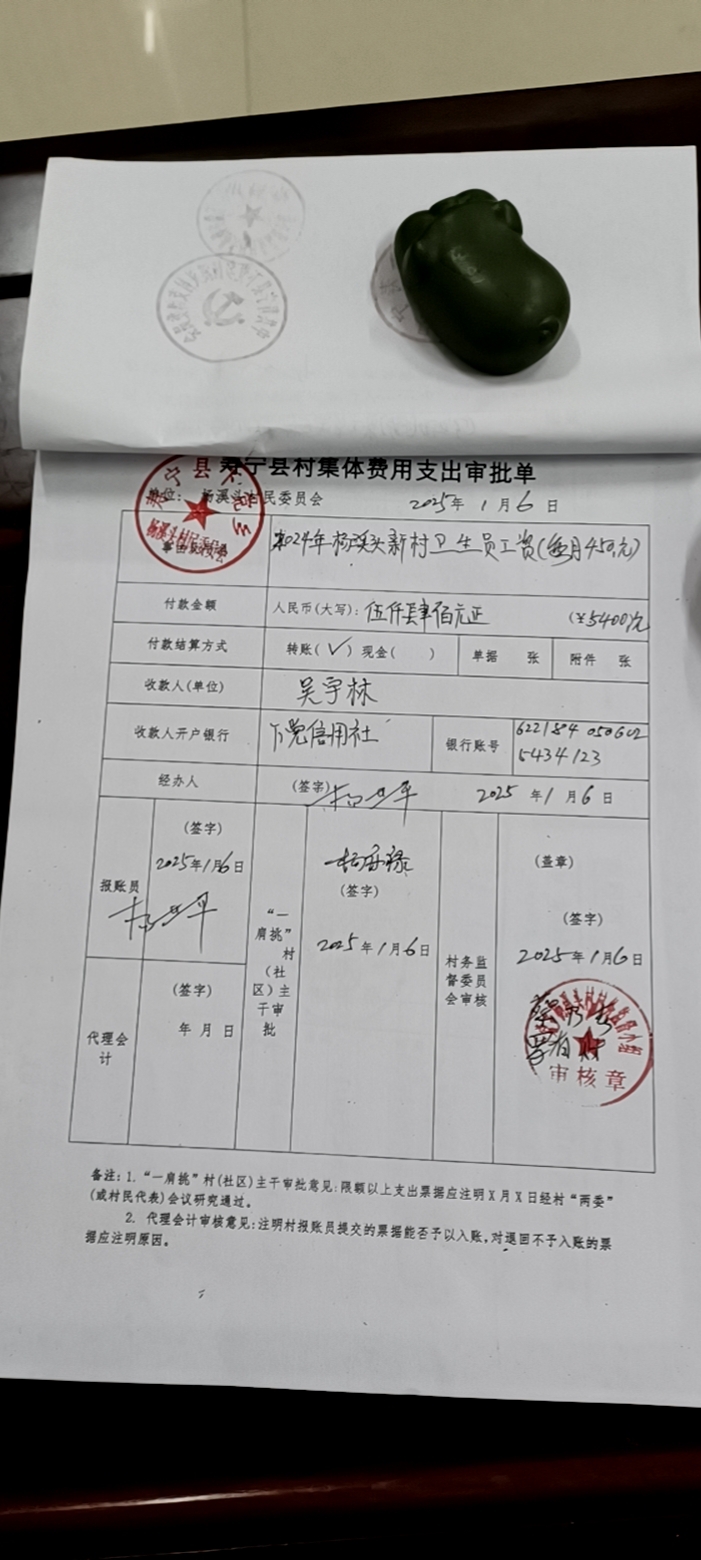 寿宁县村集体费用支出审批单
单位: 杨溪头村民委员会 2025年 1月6日
2024年杨溪头新村卫生员工资(每月450元)
付款金额 人民币(大写): 伍仟肆佰元正 (¥5400元
付款结算方式 转账(✓) 现金( ) 单据 张 附件 张
收款人(单位) 吴宇林
收款人开户银行 下党信用社 银行账号 6221804 050602
5434123
经办人 (签字) 2025年1月6日
报账员 (签字)
2025年1月6日
“一肩挑”村(社区)主干审批
(签字)
2025年1月6日
村务监督委员会审核
(盖章)
(签字)
2025年1月6日
审核章
代理会计 (签字)
年 月 日
备注: 1. “一肩挑”村(社区)主干审批意见: 限额以上支出票据应注明X月X日经村“两委”
(或村民代表)会议研究通过。
2. 代理会计审核意见: 注明村报账员提交的票据能否予以入账, 对退回不予入账的票
据应注明原因。